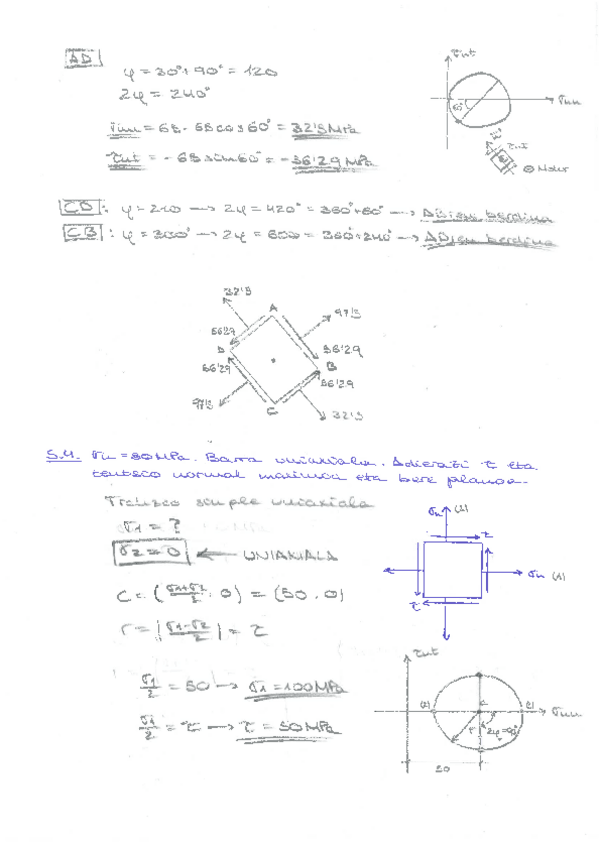 AD
φ = 30° + 90° = 120
2φ = 240°
σnn = 65 - 65 cos 60° = 32'5 MPa
τnt = - 65 sin 60° = - 56'29 MPa
τnt
σnn
60°
τnt
⊗ Motor
CD : φ = 210 → 2φ = 420° = 360° + 60° → ABren berdina
CB : φ = 300° → 2φ = 600 = 360° + 240° → ADren berdina
32'5
A
97'5
56'29
D
56'29
56'29
B
56'29
97'5
C
32'5
5.4. σn = 50 MPa. Barra uniaxiala. Adierazi τ eta
tentsio normal maximoa eta bere planoa.
Trakzio simple uniaxiala
σ1 = ?
σ2 = 0 ← UNIAXIALA
C = (σ1+σ2/2, 0) = (50, 0)
r = |σ1-σ2/2| = τ
σ1/2 = 50 → σ1 = 100 MPa
σ1/2 = τ → τ = 50 MPa
σn (2)
τ
σn (1)
τ
τnt
(2)
C
(1)
σnn
r
2φ=90°
50